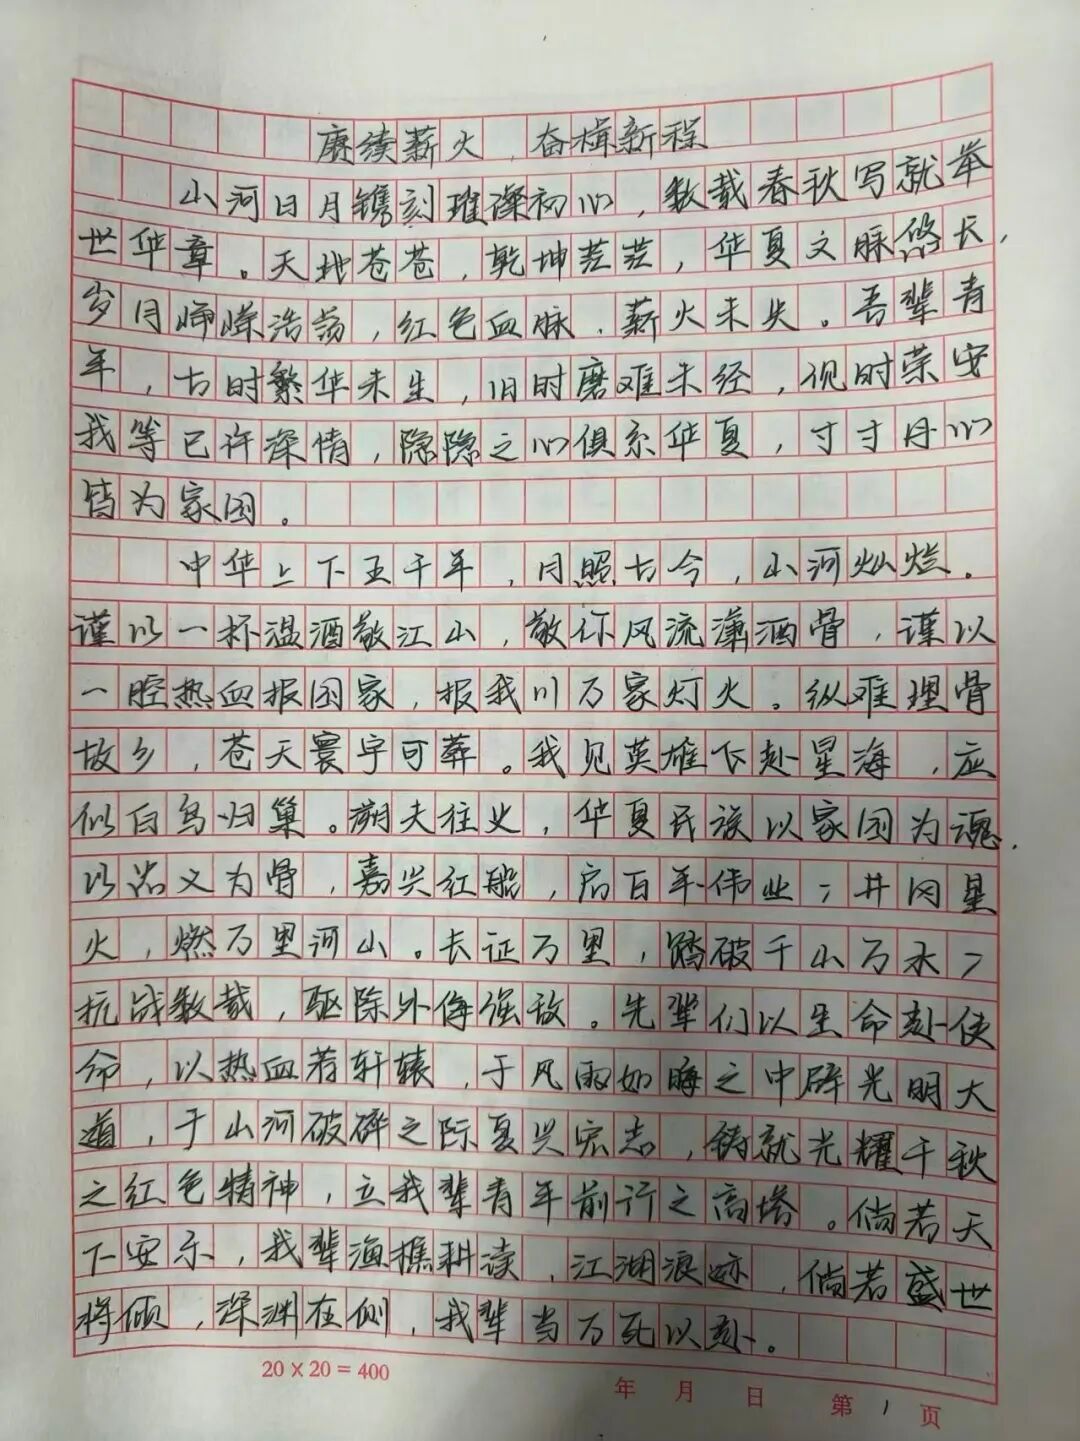 赓续薪火,奋楫新程
山河日月镌刻璀璨初心,数载春秋写就举
世华章。天地苍苍,乾坤茫茫,华夏文脉悠长,
岁月峥嵘浩荡,红色血脉,薪火未失。吾辈青
年,古时繁华未生,旧时磨难未经,现时荣安
我等已许深情,隐隐之心俱系华夏,寸寸丹心
皆为家国。
中华上下五千年,月照古今,山河灿烂。
谨以一杯温酒敬江山,敬你风流潇洒骨,谨以
一腔热血报国家,报我川万家灯火。纵难埋骨
故乡,苍天寰宇可葬。我见英雄下赴星海,应
似白鸟归巢。溯夫往史,华夏民族以家国为魂,
以义为骨,嘉兴红船,启百年伟业;井冈星
火,燃万里河山。长征万里,踏破千山万水;
抗战数载,驱除外侮强敌。先辈们以生命赴使
命,以热血荐轩辕,于风雨如晦之中辟光明大
道,于山河破碎之际复兴宏志,铸就光耀千秋
之红色精神,立我辈青年前行之高塔。倘若天
下安乐,我辈渔樵耕读,江湖浪迹,倘若盛世
将倾,深渊在侧,我辈当万死以赴。
20×20=400
年 月 日 第 1 页